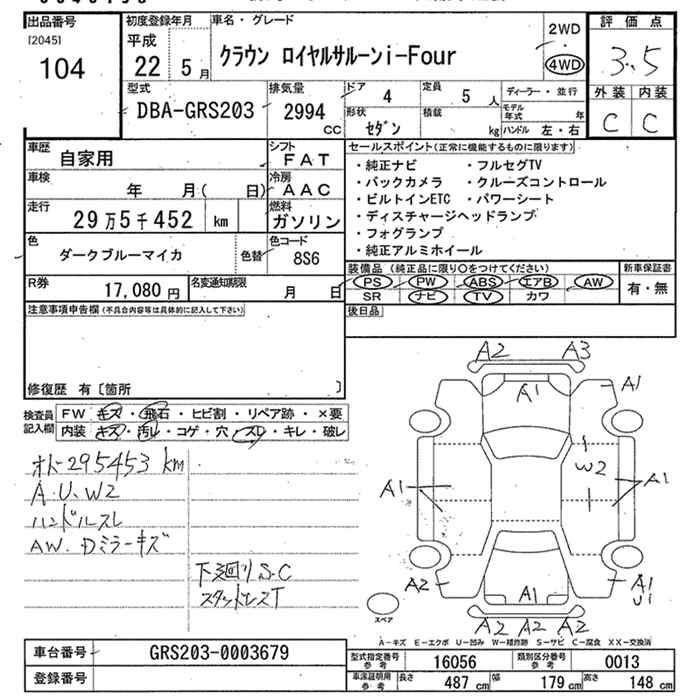 出品番号
[2045]
104
初度登録年月
平成
22 5月
車名・グレード
クラウン ロイヤルサルーンi-Four
2WD
4WD
評価点
3.5
外装 内装
C C
型式
DBA-GRS203
排気量
2994
CC
ドア
4
定員
5 人
形状
セダン
積載
kg
ディーラー・並行
モデル年式 年
ハンドル 左・右
車歴
自家用
シフト
FAT
車検
年 月( 日)
冷房
AAC
走行
29万5千452 km
燃料
ガソリン
色
ダークブルーマイカ
色替
色コード
8S6
R券
17,080 円
名変通知期限
月 日
セールスポイント(正常に機能するものに限ります)
・純正ナビ ・フルセグTV
・バックカメラ ・クルーズコントロール
・ビルトインETC ・パワーシート
・ディスチャージヘッドランプ
・フォグランプ
・純正アルミホイール
装備品(純正品に限り○をつけてください)
PS PW ABS エアB AW
SR ナビ TV カワ
新車保証書
有・無
後日品
注意事項申告欄(不具合内容等は具体的に記入して下さい)
修復歴 有〔箇所 〕
検査員記入欄
FW キズ・飛石・ヒビ割・リペア跡・×要
内装 キズ・汚レ・コゲ・穴・スレ・キレ・破レ
オドー295453 km
A.U.W2
ハンドルスレ
AW.Dミラーキズ
下廻りS.C
スタットレスT
A2 A3
A1
A1
W2
A1
A1
A2
A1
A1
U1
A2 A2 A2
スペア
A-キズ E-エクボ U-凹み W-補修跡 S-サビ C-腐食 XX-交換済
車台番号
GRS203-0003679
登録番号
型式指定番号 参考
16056
類別区分番号 参考
0013
車庫証明用 参考
長さ 487 cm
幅 179 cm
高さ 148 cm